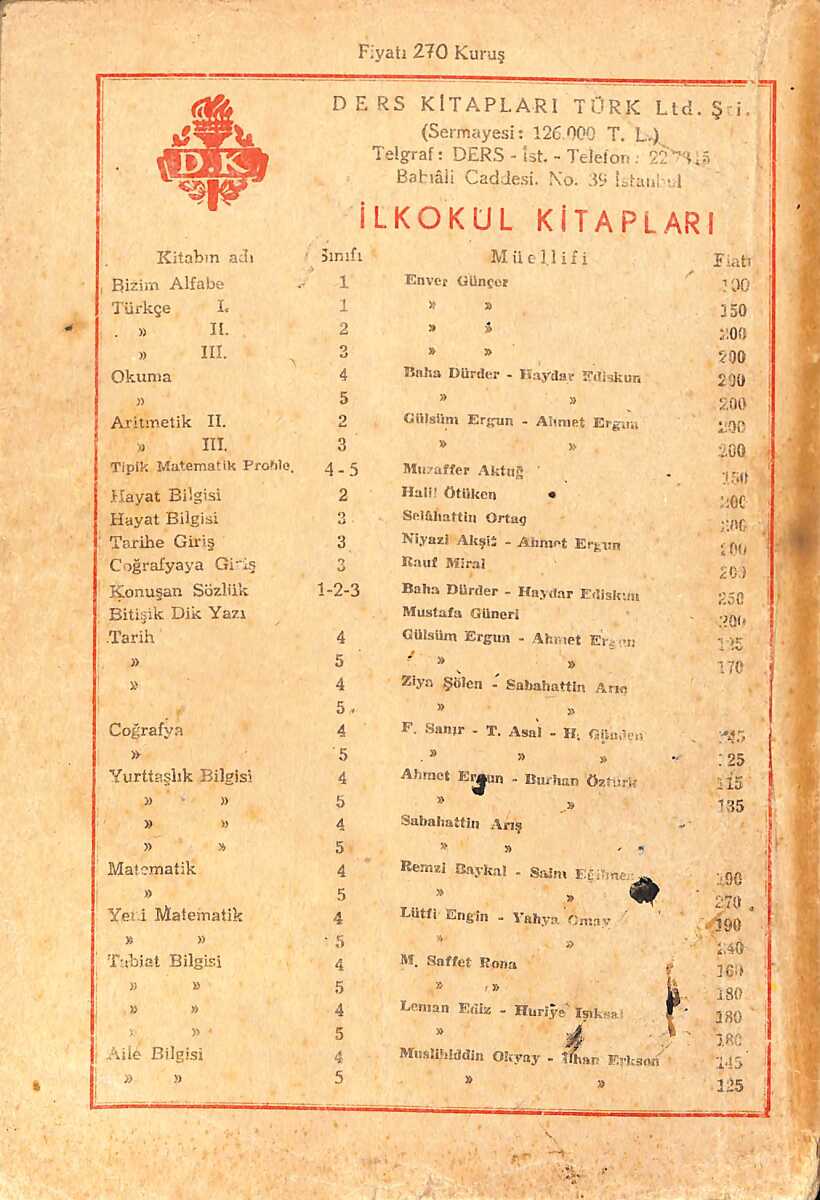 Fiyatı 270 Kuruş
DERS KİTAPLARI TÜRK Ltd. Şti.
(Sermayesi: 126.000 T. L.)
Telgraf: DERS - İst. - Telefon:
Babıâli Caddesi. No. 39 İstanbul
D.K
İLKOKUL KİTAPLARI
Kitabın adı Sınıfı Müellifi Fiatı
Bizim Alfabe 1 Enver Günçer 100
Türkçe I. 1 » » 150
» II. 2 » » 200
» III. 3 » » 200
Okuma 4 Baha Dürder - Haydar Ediskun 200
» 5 » » 200
Aritmetik II. 2 Gülsüm Ergun - Ahmet Ergun 200
» III. 3 » » 200
Tipik Matematik Proble. 4-5 Muzaffer Aktuğ 150
Hayat Bilgisi 2 Halil Ötüken 200
Hayat Bilgisi 3 Selâhattin Ortaç
Tarihe Giriş 3 Niyazi Akşit - Ahmet Ergun
Coğrafyaya Giriş 3 Rauf Miral 200
Konuşan Sözlük 1-2-3 Baha Dürder - Haydar Ediskun 250
Bitişik Dik Yazı Mustafa Güneri 200
Tarih 4 Gülsüm Ergun - Ahmet Ergun 125
» 5 » » 170
» 4 Ziya Şölen - Sabahattin Arıç
5 » »
Coğrafya 4 F. Sanır - T. Asal - H. Günden
» 5 » » » 125
Yurttaşlık Bilgisi 4 Ahmet Ergun - Burhan Öztürk 115
» » 5 » » 135
» » 4 Sabahattin Arış
» » 5 » »
Matematik 4 Remzi Baykal - Saim Eğilmez 190
» 5 » » 270
Yeni Matematik 4 Lütfi Engin - Yahya Omay 190
» » 5 » » 240
Tabiat Bilgisi 4 M. Saffet Rona 160
» » 5 » » 180
» » 4 Leman Ediz - Huriye Işıksal 180
» » 5 » 180
Aile Bilgisi 4 Muslihiddin Okyay - İlhan Erkson 145
» » 5 » » 125